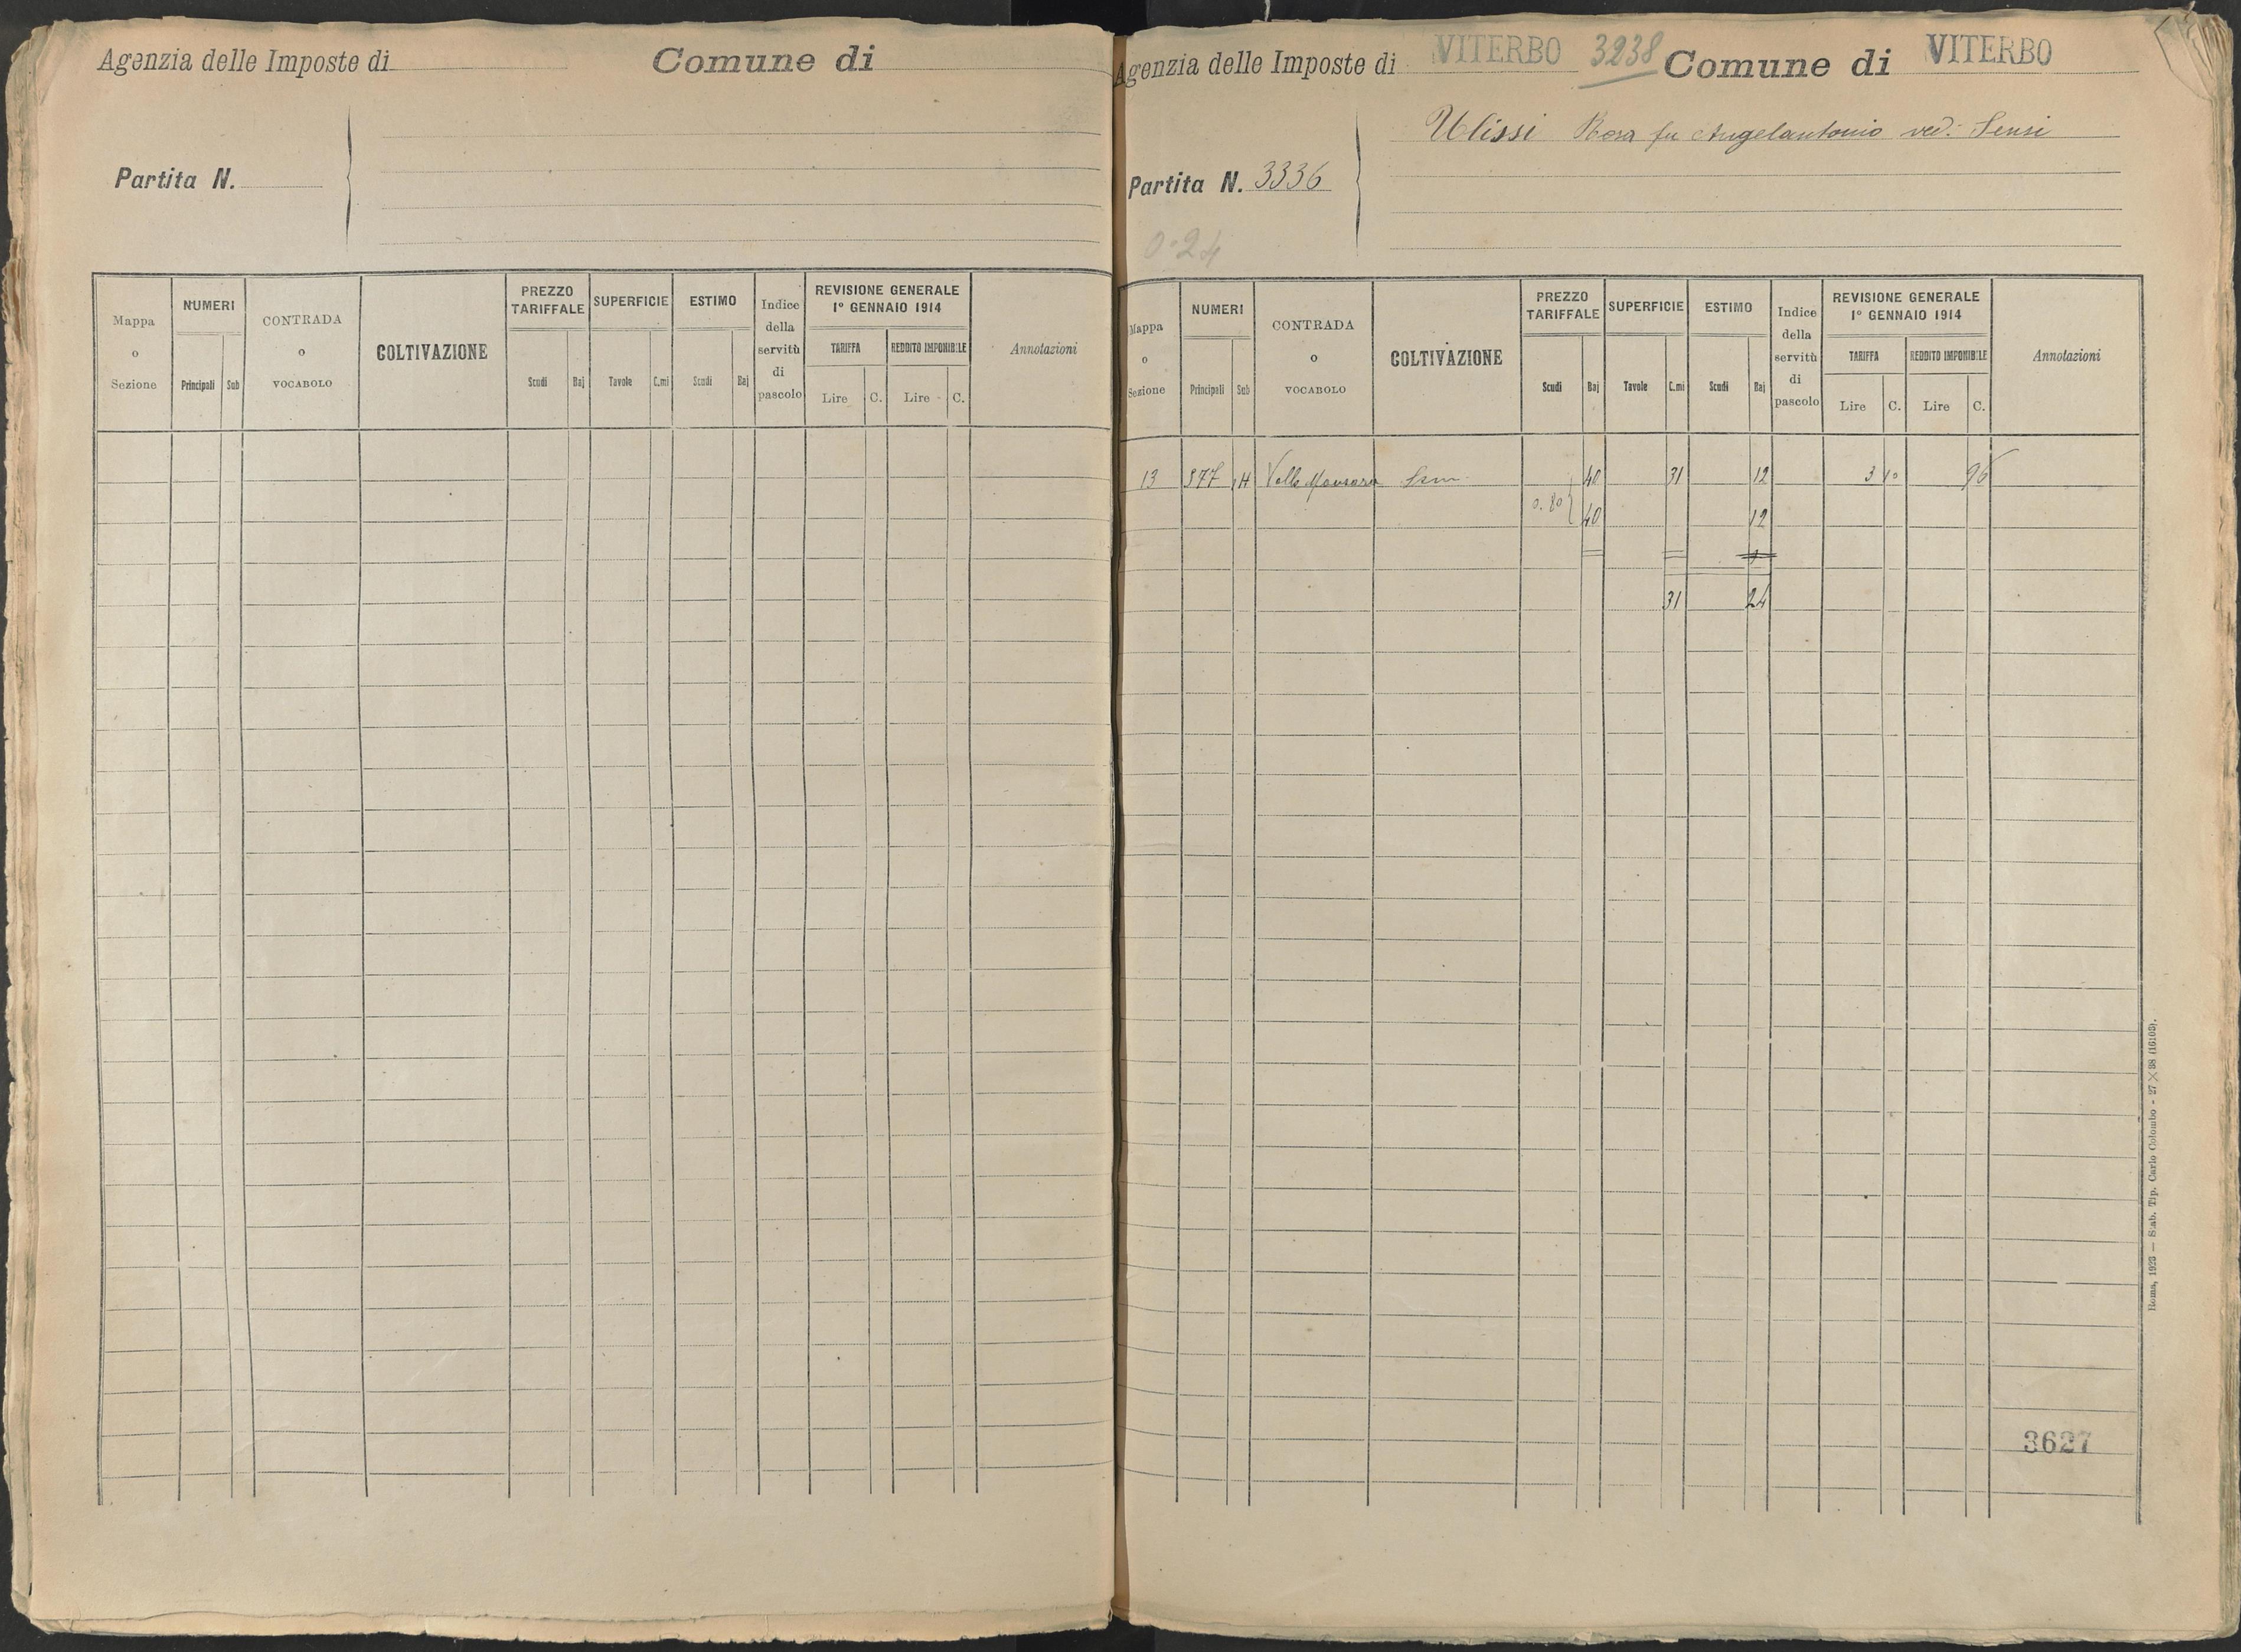 Agenzia delle Imposte di
Comune di
Partita N.
Mappa o Sezione
NUMERI
Principali
Sub
CONTRADA o VOCABOLO
COLTIVAZIONE
PREZZO TARIFFALE
Scudi
Baj
SUPERFICIE
Tavole
C.mi
ESTIMO
Scudi
Baj
Indice della servitù di pascolo
REVISIONE GENERALE
1° GENNAIO 1914
TARIFFA
REDDITO IMPONIBILE
Lire
C.
Lire
C.
Annotazioni
Agenzia delle Imposte di VITERBO 3238 Comune di VITERBO
Ulissi Rosa fu Angelantonio ved: Sensi
Partita N. 3336
0.24
Mappa o Sezione
NUMERI
Principali
Sub
CONTRADA o VOCABOLO
COLTIVAZIONE
PREZZO TARIFFALE
Scudi
Baj
SUPERFICIE
Tavole
C.mi
ESTIMO
Scudi
Baj
Indice della servitù di pascolo
REVISIONE GENERALE
1° GENNAIO 1914
TARIFFA
REDDITO IMPONIBILE
Lire
C.
Lire
C.
Annotazioni
13 Valle 40 31 12 3 10 96
0.80 40 12
31 24
3627
Roma, 1923 — Stab. Tip. Carlo Colombo - 27 X 38 (16103).